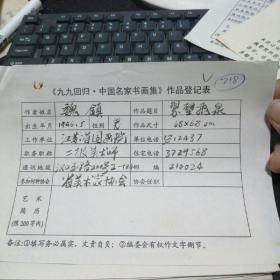 V (718)
《九九回归·中国名家书画集》作品登记表
作者姓名 魏镇 作品题目 翠壁飞泉
出生年月 1946.5 性别 男 作品尺寸 68x68 cm
工作单位 江苏省国画院 单位电话
职务职称 二级美术师 住宅电话 3729568
通讯地址 邮编 210024
参加何种协会 省美术家协会 协会任职
艺术
简历
(限200字内)
备注:①填写务必属实,文责自负;②编委会有权作文字删节。